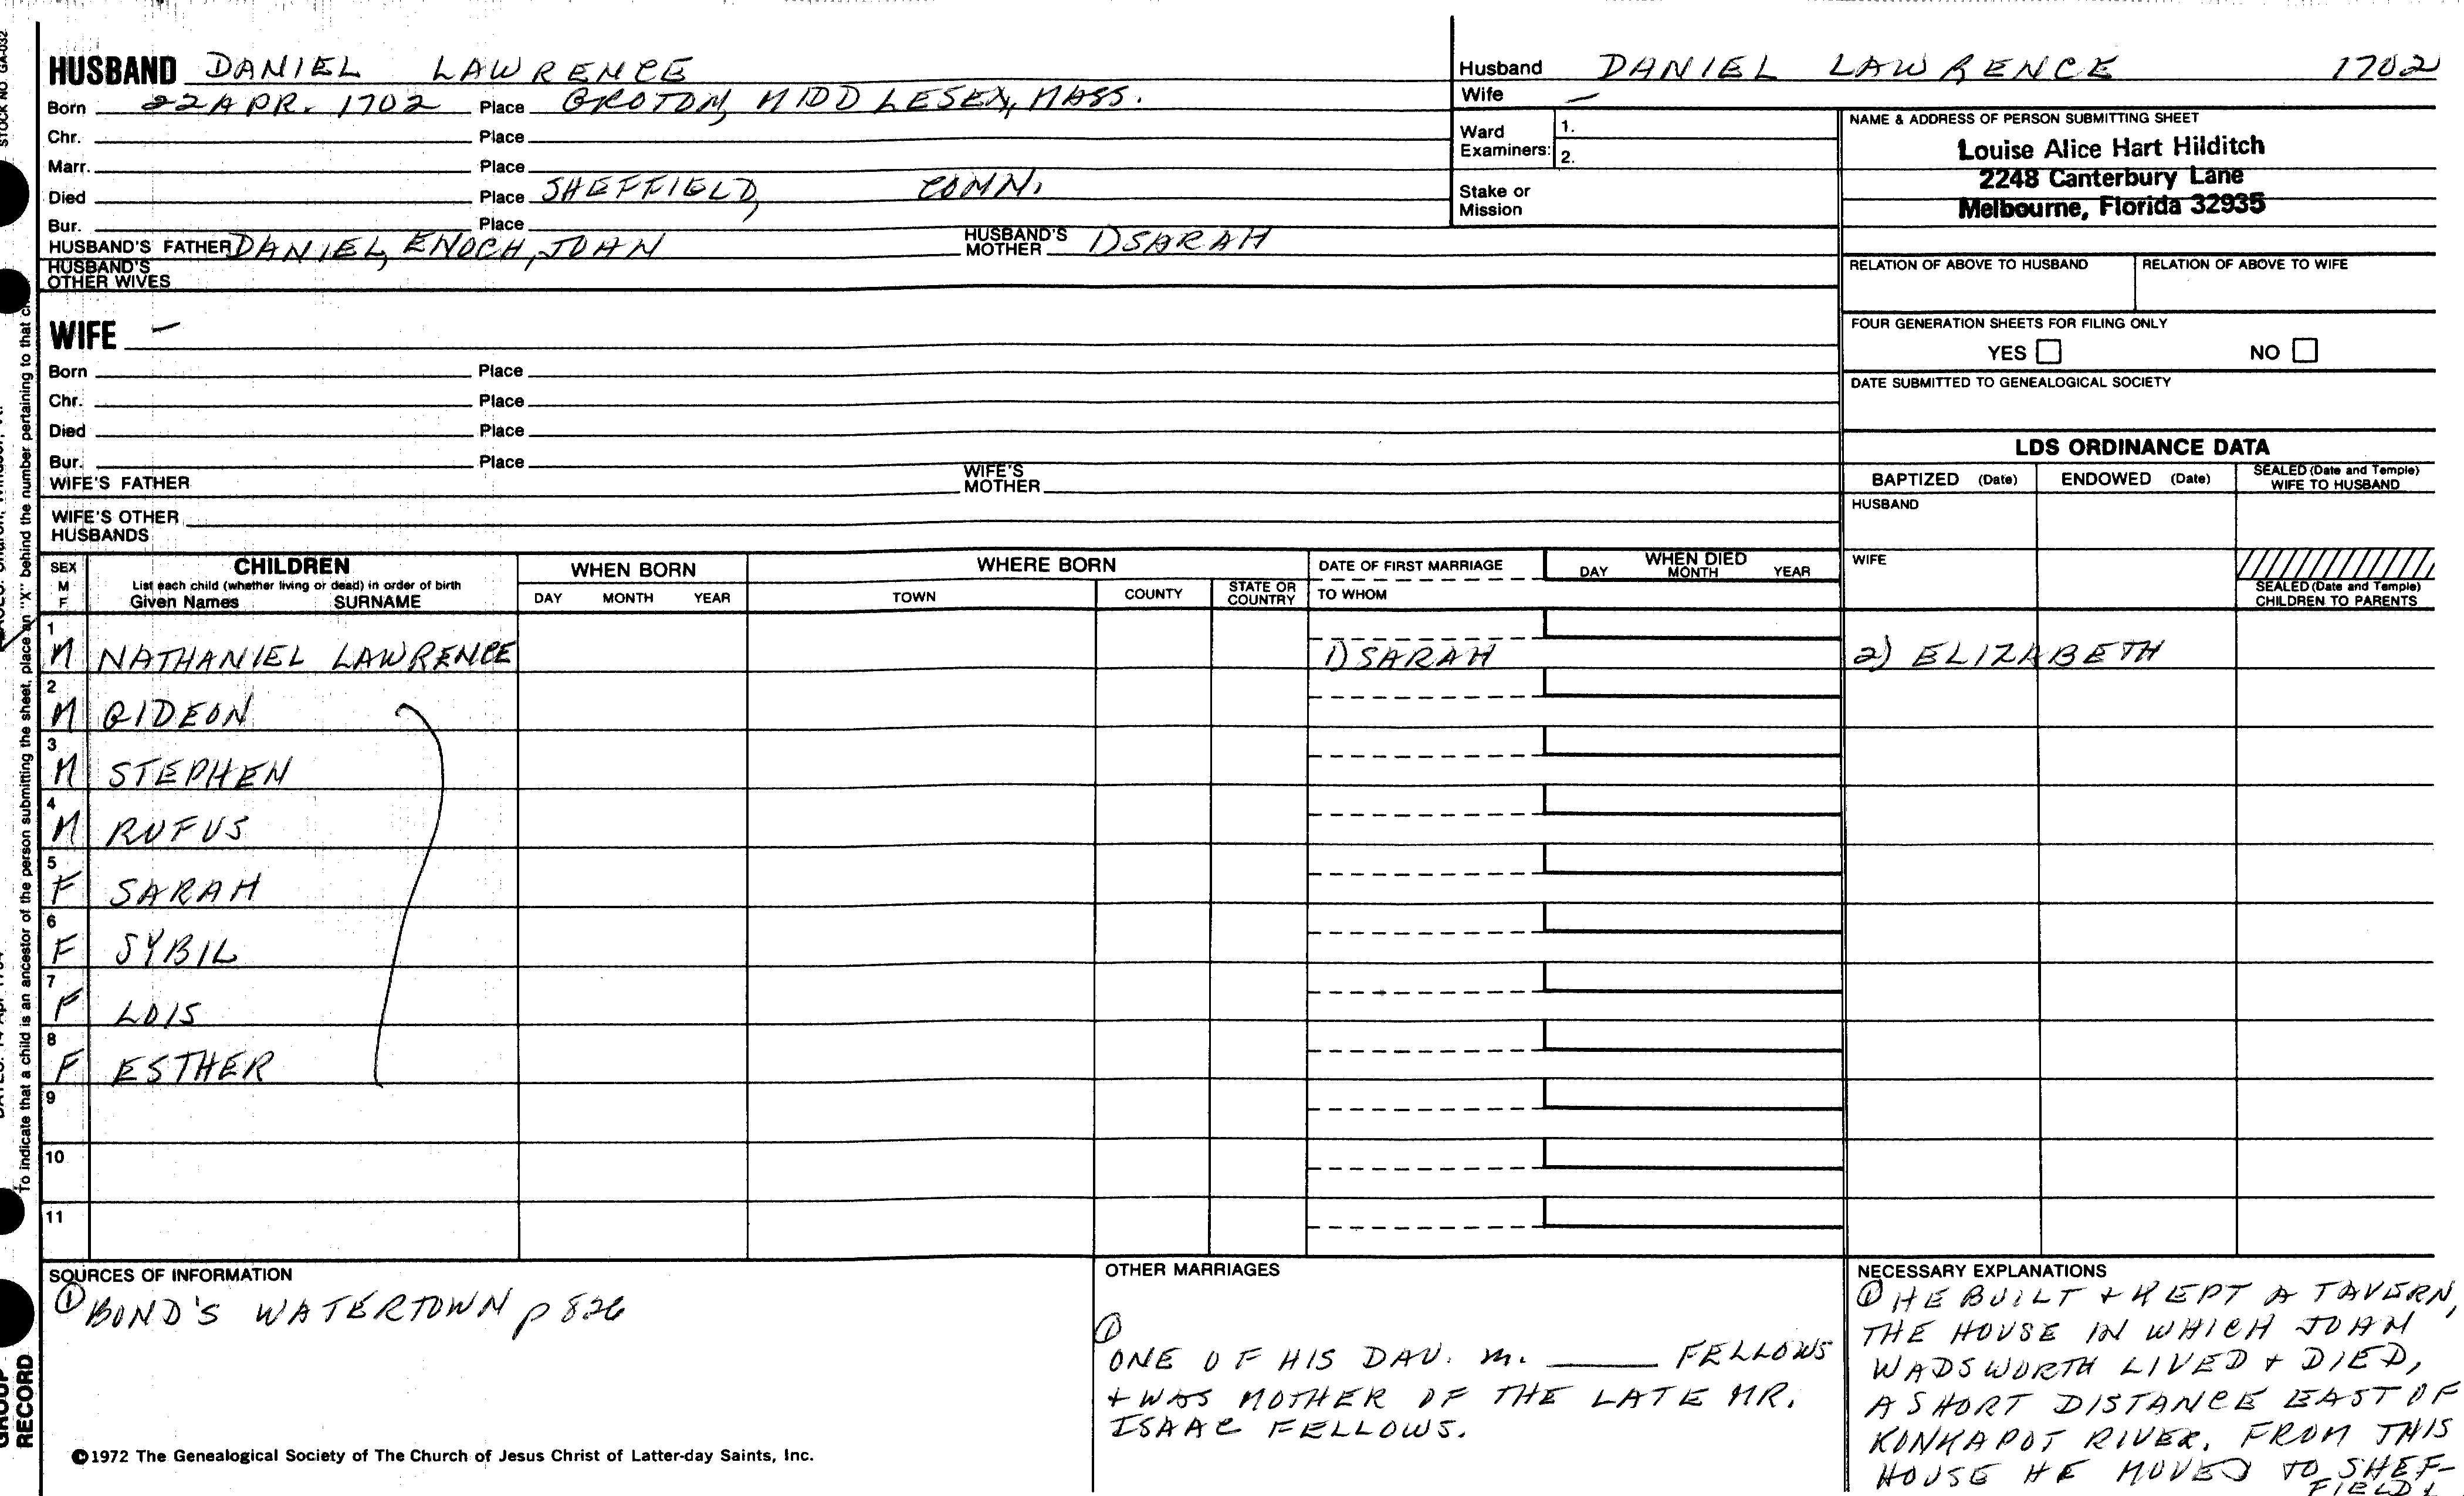 STOCK NO. GA-032
HUSBAND DANIEL LAWRENCE
Born 22 APR. 1702 Place GROTON, MIDDLESEX, MASS.
Chr. Place
Marr. Place
Died Place SHEFFIELD, CONN.
Bur. Place
HUSBAND'S FATHER DANIEL, ENOCH, JOHN HUSBAND'S MOTHER 1) SARAH
HUSBAND'S OTHER WIVES
Husband DANIEL LAWRENCE 1702
Wife –
Ward Examiners: 1.
2.
Stake or Mission
NAME & ADDRESS OF PERSON SUBMITTING SHEET
Louise Alice Hart Hilditch
2248 Canterbury Lane
Melbourne, Florida 32935
RELATION OF ABOVE TO HUSBAND RELATION OF ABOVE TO WIFE
FOUR GENERATION SHEETS FOR FILING ONLY
YES NO
DATE SUBMITTED TO GENEALOGICAL SOCIETY
WIFE –
Born Place
Chr. Place
Died Place
Bur. Place
WIFE'S FATHER WIFE'S MOTHER
WIFE'S OTHER HUSBANDS
LDS ORDINANCE DATA
BAPTIZED (Date) ENDOWED (Date) SEALED (Date and Temple) WIFE TO HUSBAND
HUSBAND
WIFE
SEALED (Date and Temple) CHILDREN TO PARENTS
SEX M F
CHILDREN
List each child (whether living or dead) in order of birth
Given Names SURNAME
WHEN BORN
DAY MONTH YEAR
WHERE BORN
TOWN COUNTY STATE OR COUNTRY
DATE OF FIRST MARRIAGE
TO WHOM
WHEN DIED
DAY MONTH YEAR
1 M NATHANIEL LAWRENCE 1) SARAH 2) ELIZABETH
2 M GIDEON
3 M STEPHEN
4 M RUFUS
5 F SARAH
6 F SYBIL
7 F LOIS
8 F ESTHER
9
10
11
SOURCES OF INFORMATION
① BOND'S WATERTOWN p 826
©1972 The Genealogical Society of The Church of Jesus Christ of Latter-day Saints, Inc.
OTHER MARRIAGES
①
ONE OF HIS DAU. m. ____ FELLOWS
+ WAS MOTHER OF THE LATE MR.
ISAAC FELLOWS.
NECESSARY EXPLANATIONS
① HE BUILT + KEPT A TAVERN,
THE HOUSE IN WHICH JOHN
WADSWORTH LIVED + DIED,
A SHORT DISTANCE EAST OF
KONKAPOT RIVER. FROM THIS
HOUSE HE MOVED TO SHEF-
FIELD
To indicate that a child is an ancestor of the person submitting the sheet, place an "X" behind the number pertaining to that
GROUP
RECORD